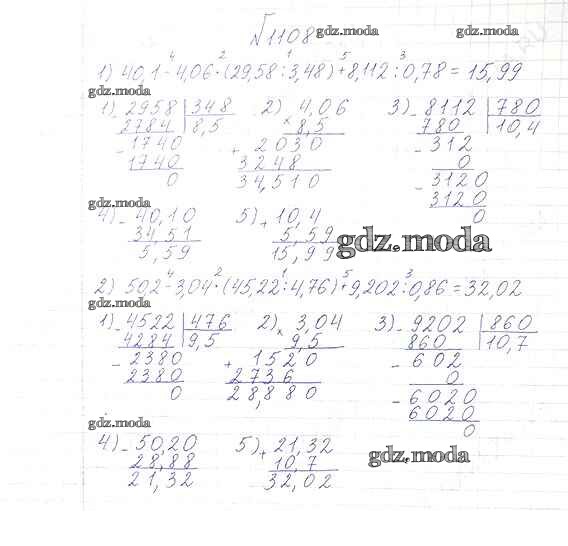 №1108
gdz.moda
gdz.moda
1) 40,1 - 4,06 · (29,58 : 3,48) + 8,112 : 0,78 = 15,99
4 2 1 5 3
gdz.moda
1) - 2958 | 348
2784 | 8,5
- 1740
1740
0
2) × 4,06
8,5
+ 2030
3248
34,510
3) - 8112 | 780
780 | 10,4
- 312
0
- 3120
3120
0
gdz.moda
4) - 40,10
34,51
5,59
5) + 10,4
5,59
15,99
gdz.moda
2) 50,2 - 3,04 · (45,22 : 4,76) + 9,202 : 0,86 = 32,02
4 2 1 5 3
gdz.moda
1) - 4522 | 476
4284 | 9,5
- 2380
2380
0
2) × 3,04
9,5
+ 1520
2736
28,880
3) - 9202 | 860
860 | 10,7
- 602
0
- 6020
6020
0
gdz.moda
4) - 50,20
28,88
21,32
5) + 21,32
10,7
32,02
gdz.moda